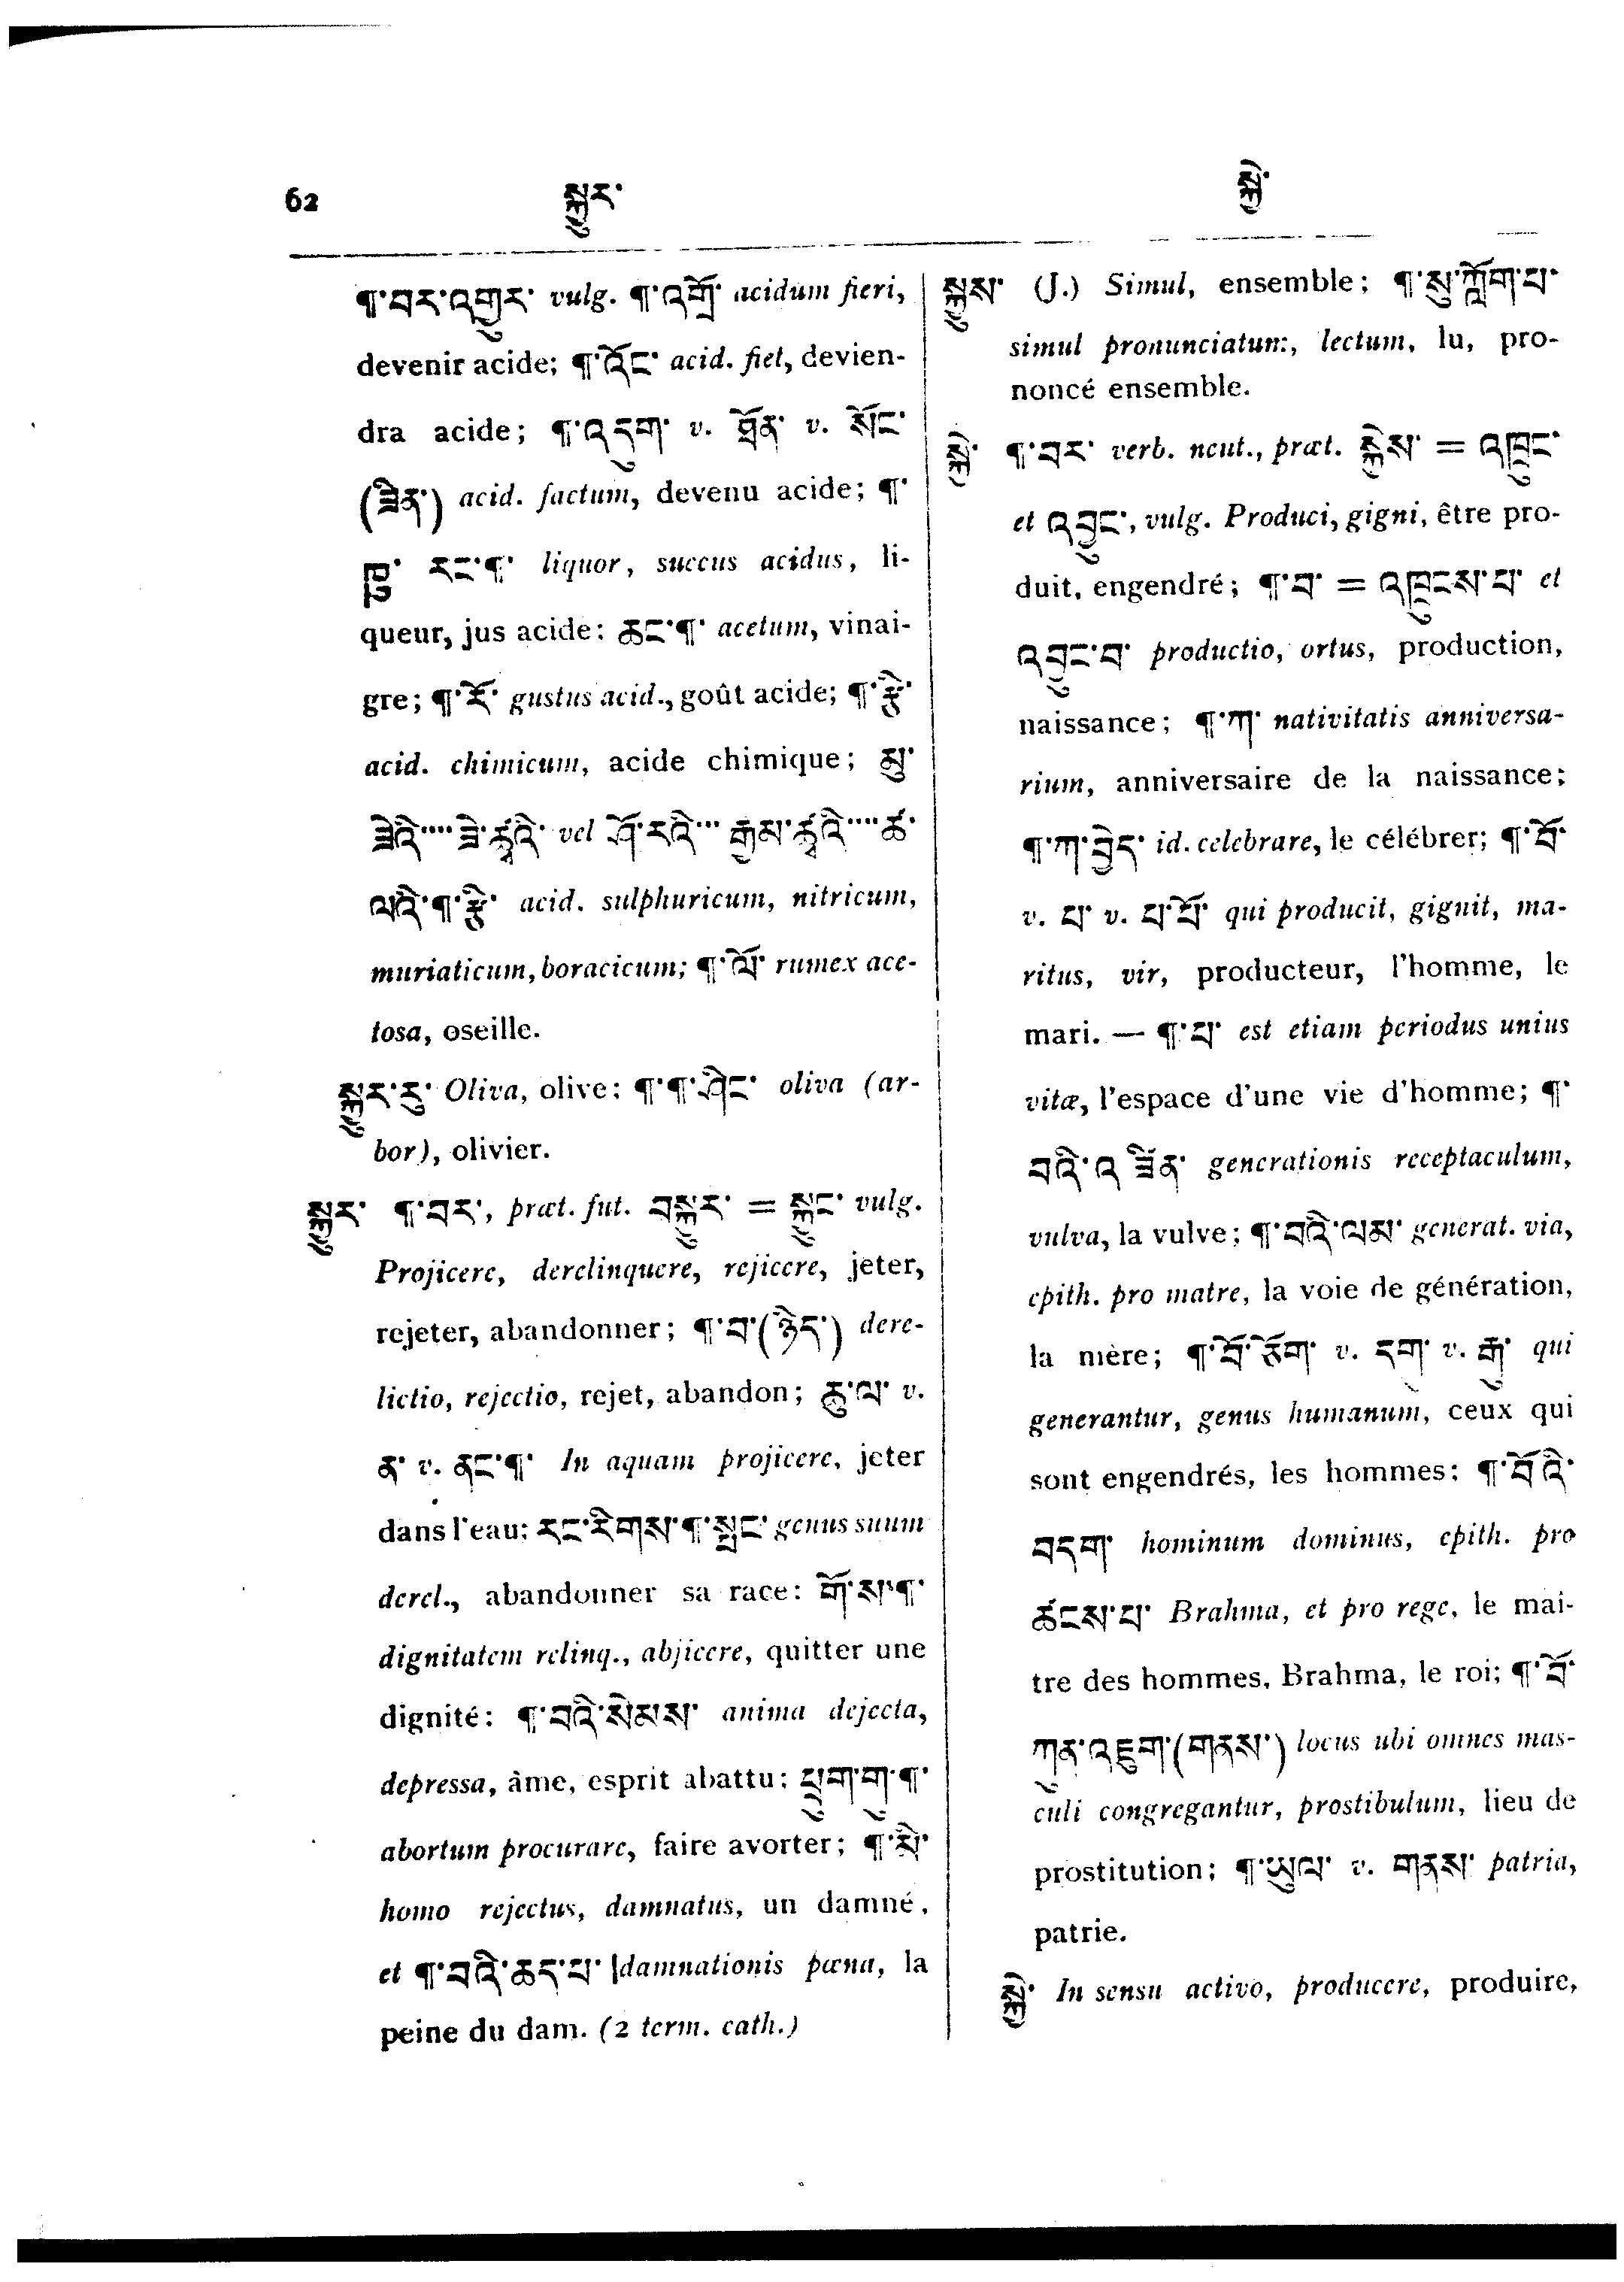 62 སྐྱུར་ སྐྱེ་
¶་བར་འགྱུར་ vulg. ¶་འགྲོ་ acidum fieri,
devenir acide; ¶་འོང་ acid. fiet, devien-
dra acide; ¶་འདུག་ v. ཐོན་ v. སོང་
(ཟིན་) acid. factum, devenu acide; ¶་
ཁུ་ རང་¶་ liquor, succus acidus, li-
queur, jus acide: ཆང་¶་ acetum, vinai-
gre; ¶་རོ་ gustus acid., goût acide; ¶་རྩི་
acid. chimicum, acide chimique; མུ་
ཟིའི་···· ཟེ་ཚྭའི་ vel ཤོ་རའི་··· རྒྱམ་ཚྭའི་···· ཚ་
ལའི་¶་རྩི་ acid. sulphuricum, nitricum,
muriaticum, boracicum; ¶་ལོ་ rumex ace-
tosa, oseille.
སྐྱུར་རུ་ Oliva, olive: ¶་¶་ཤིང་ oliva (ar-
bor), olivier.
སྐྱུར་ ¶་བར་, præt. fut. བསྐྱུར་ = སྐྱུང་ vulg.
Projicere, derelinquere, rejicere, jeter,
rejeter, abandonner; ¶་བ་(ཉེད་) dere-
lictio, rejectio, rejet, abandon; ཆུ་ལ་ v.
ན་ v. ནང་¶་ In aquam projicere, jeter
dans l'eau: རང་རིགས་¶་སྤང་ genus suum
derel., abandonner sa race: གོ་ས་¶་
dignitatem relinq., abjicere, quitter une
dignité: ¶་བའི་སེམས་ anima dejecta,
depressa, âme, esprit abattu: ཕྲུག་གུ་¶་
abortum procurare, faire avorter; ¶་མི་
homo rejectus, damnatus, un damné,
et ¶་བའི་ཆད་པ་ damnationis pœna, la
peine du dam. (2 term. cath.)
སྐྱུས་ (J.) Simul, ensemble; ¶་སུ་ཀློག་པ་
simul pronunciatum:, lectum, lu, pro-
noncé ensemble.
སྐྱེ་ ¶་བར་ verb. neut., præt. སྐྱེས་ = འཁྲུང་
et འབྱུང་, vulg. Produci, gigni, être pro-
duit, engendré; ¶་བ་ = འཁྲུངས་པ་ et
འབྱུང་བ་ productio, ortus, production,
naissance; ¶་ཀ་ nativitatis anniversa-
rium, anniversaire de la naissance;
¶་ཀ་བྱེད་ id. celebrare, le célébrer; ¶་བོ་
v. པ་ v. པ་པོ་ qui producit, gignit, ma-
ritus, vir, producteur, l'homme, le
mari. — ¶་པ་ est etiam periodus unius
vitæ, l'espace d'une vie d'homme; ¶་
བའི་འཛིན་ generationis receptaculum,
vulva, la vulve; ¶་བའི་ལམ་ generat. via,
epith. pro matre, la voie de génération,
la mère; ¶་བོ་ཚོག་ v. དག་ v. རྒུ་ qui
generantur, genus humanum, ceux qui
sont engendrés, les hommes: ¶་བོའི་
བདག་ hominum dominus, epith. pro
ཚངས་པ་ Brahma, et pro rege, le mai-
tre des hommes, Brahma, le roi; ¶་བོ་
ཀུན་འཇུག་(གནས་) locus ubi omnes mas-
culi congregantur, prostibulum, lieu de
prostitution; ¶་ཡུལ་ v. གནས་ patria,
patrie.
སྐྱེ་ In sensu activo, producere, produire,